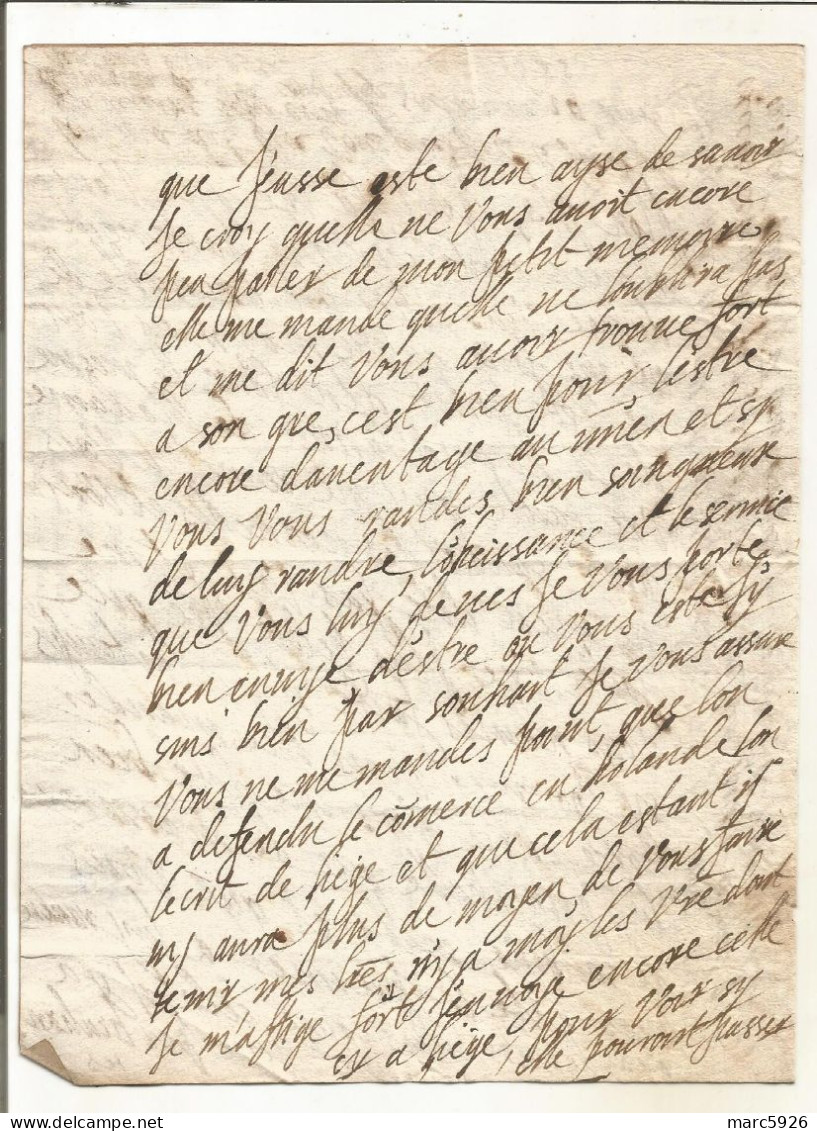 que Jeusse este bien ayse de savoir
Je croy quelle ne Vous avoit encore
peu parler de mon petit memoire
elle me mande quelle ne loublira pas
et me dit Vous avoir trouve fort
a son gre, cest bien pour lestre
encore daventage au mien et sy
Vous Vous randes bien soingneux
de luy randre lobeissance et le servise
que Vous luy deves Je Vous porte
bien envye destre ou Vous este Jy
suis bien par souhait Je Vous assure
Vous ne me mandes point, que lon
a defendu le comerce en holande lon
lecrit de liege et que cela estant il
ny aura plus de moyen de Vous faire
tenir mes lres ny a moy les Vre dont
Je maflige fort Jenvoye encore celle
cy a liege, pour Voir sy
elle pourait passer
marc5926